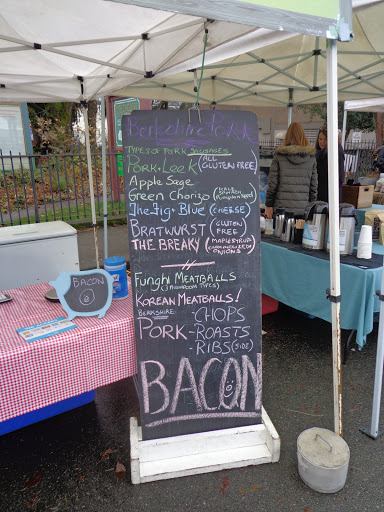 Berkshire Pork
TYPES OF PORK SAUSAGES
PORK-LEEK (ALL GLUTEN FREE)
APPLE SAGE
GREEN CHORIZO
THE FIG & BLUE (CHEESE)
BRATWURST (GLUTEN FREE)
THE BREAKY (MAPLE SYRUP ONIONS)
FUNGHI MEATBALLS
KOREAN MEATBALLS!
BERKSHIRE
PORK
-CHOPS
-ROASTS
-RIBS (SIDE)
BACON
BACON